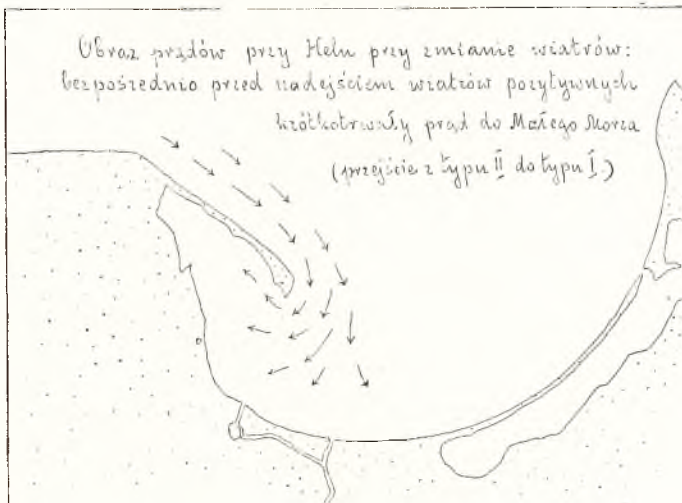 Obraz prądów przy Helu przy zmianie wiatrów:
bezpośrednio przed nadejściem wiatrów pozytywnych
krótkotrwały prąd do Małego Morza
(przejście z typu II do typu I.)